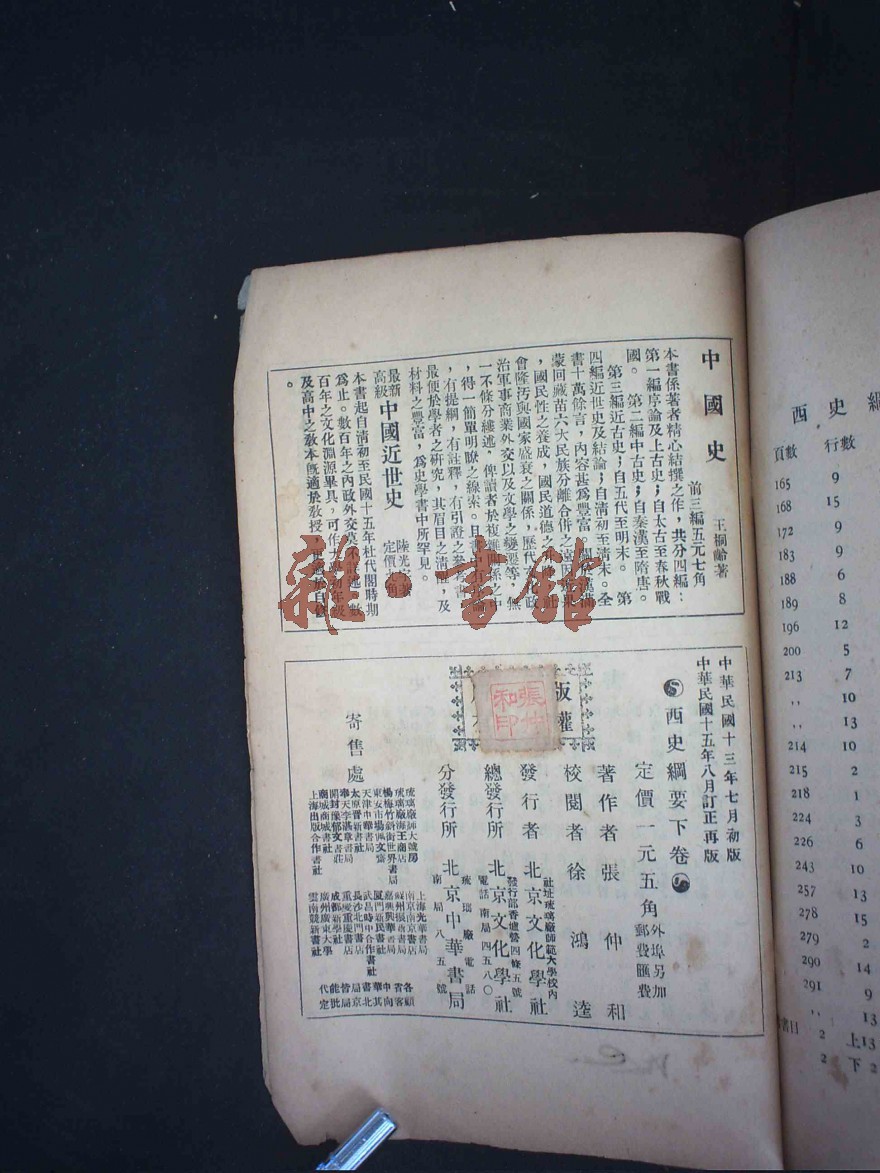 中國史
王桐齡著
前三編五元七角
本書係著者精心結撰之作，共分四編：
第一編序論及上古史；自太古至春秋戰
國。　第二編中古史；自秦漢至隋唐。
第三編近古史；自五代至明末。　第
四編近世史及結論；自清初至清末。全
書十萬餘言，內容甚爲豐富
蒙回藏苗六大民族分離合併之
，國民性之養成，國民道德之
會隆汚與國家盛衰之關係，歷代
治軍事商業外交以及文學之變遷等，無
一不條分縷述，俾讀者於複雜
，得一簡單明瞭之線索。且
，有提綱，有註釋，有引證之參考書
最便於學者之研究，其眉目之清
，及
材料之豐富，爲史學書中所罕見。
最新
高級
中國近世史
陸光宇著
定價
本書起自清初至民國十五年杜代閣時期
爲止。數百年之內政外交莫不
數
百年之文化淵源畢具，可作大
初年級
及高中之教本旣適於教授
。
雜·書館
中華民國十三年七月初版
中華民國十五年八月訂正再版
西史綱要下卷
定價一元五角
外埠另加
郵費匯費
著作者　張仲和
校閱者　徐鴻逵
發行者　北京文化學社
社址琉璃廠師範大學校內
發行部香爐營四條五號
總發行所　北京文化學社
電話南局四五八〇
分發行所　北京中華書局
琉璃廠電話
南局八五號
版權
張仲
和印
寄售處
琉璃廠師大號房
琉璃廠海王商店
楊梅竹斜街世界書局
東安市場佩文齋
天津中華書局
太原晉新書社
奉天李湛章書局
開封豫郁文書莊
商城商城書社
上海出版合作書社
上海光華書局
南京南京書店
蘇州振新書局
嘉興興華書局
廈門新民書社
武昌時中合作書社
長沙北門書店
重慶重慶書店
成都新學社
廣州廣東大學
雲南競新書社
西史綱
頁數　行數
165　9
168　15
172　9
183　9
188　6
189　8
196　12
200　5
213　7
,,　10
,,　13
214　10
215　2
218　1
224　3
226　6
243　10
257　13
278　15
279　2
290　14
291　9
,,　13
書目　2　上13
2　下2